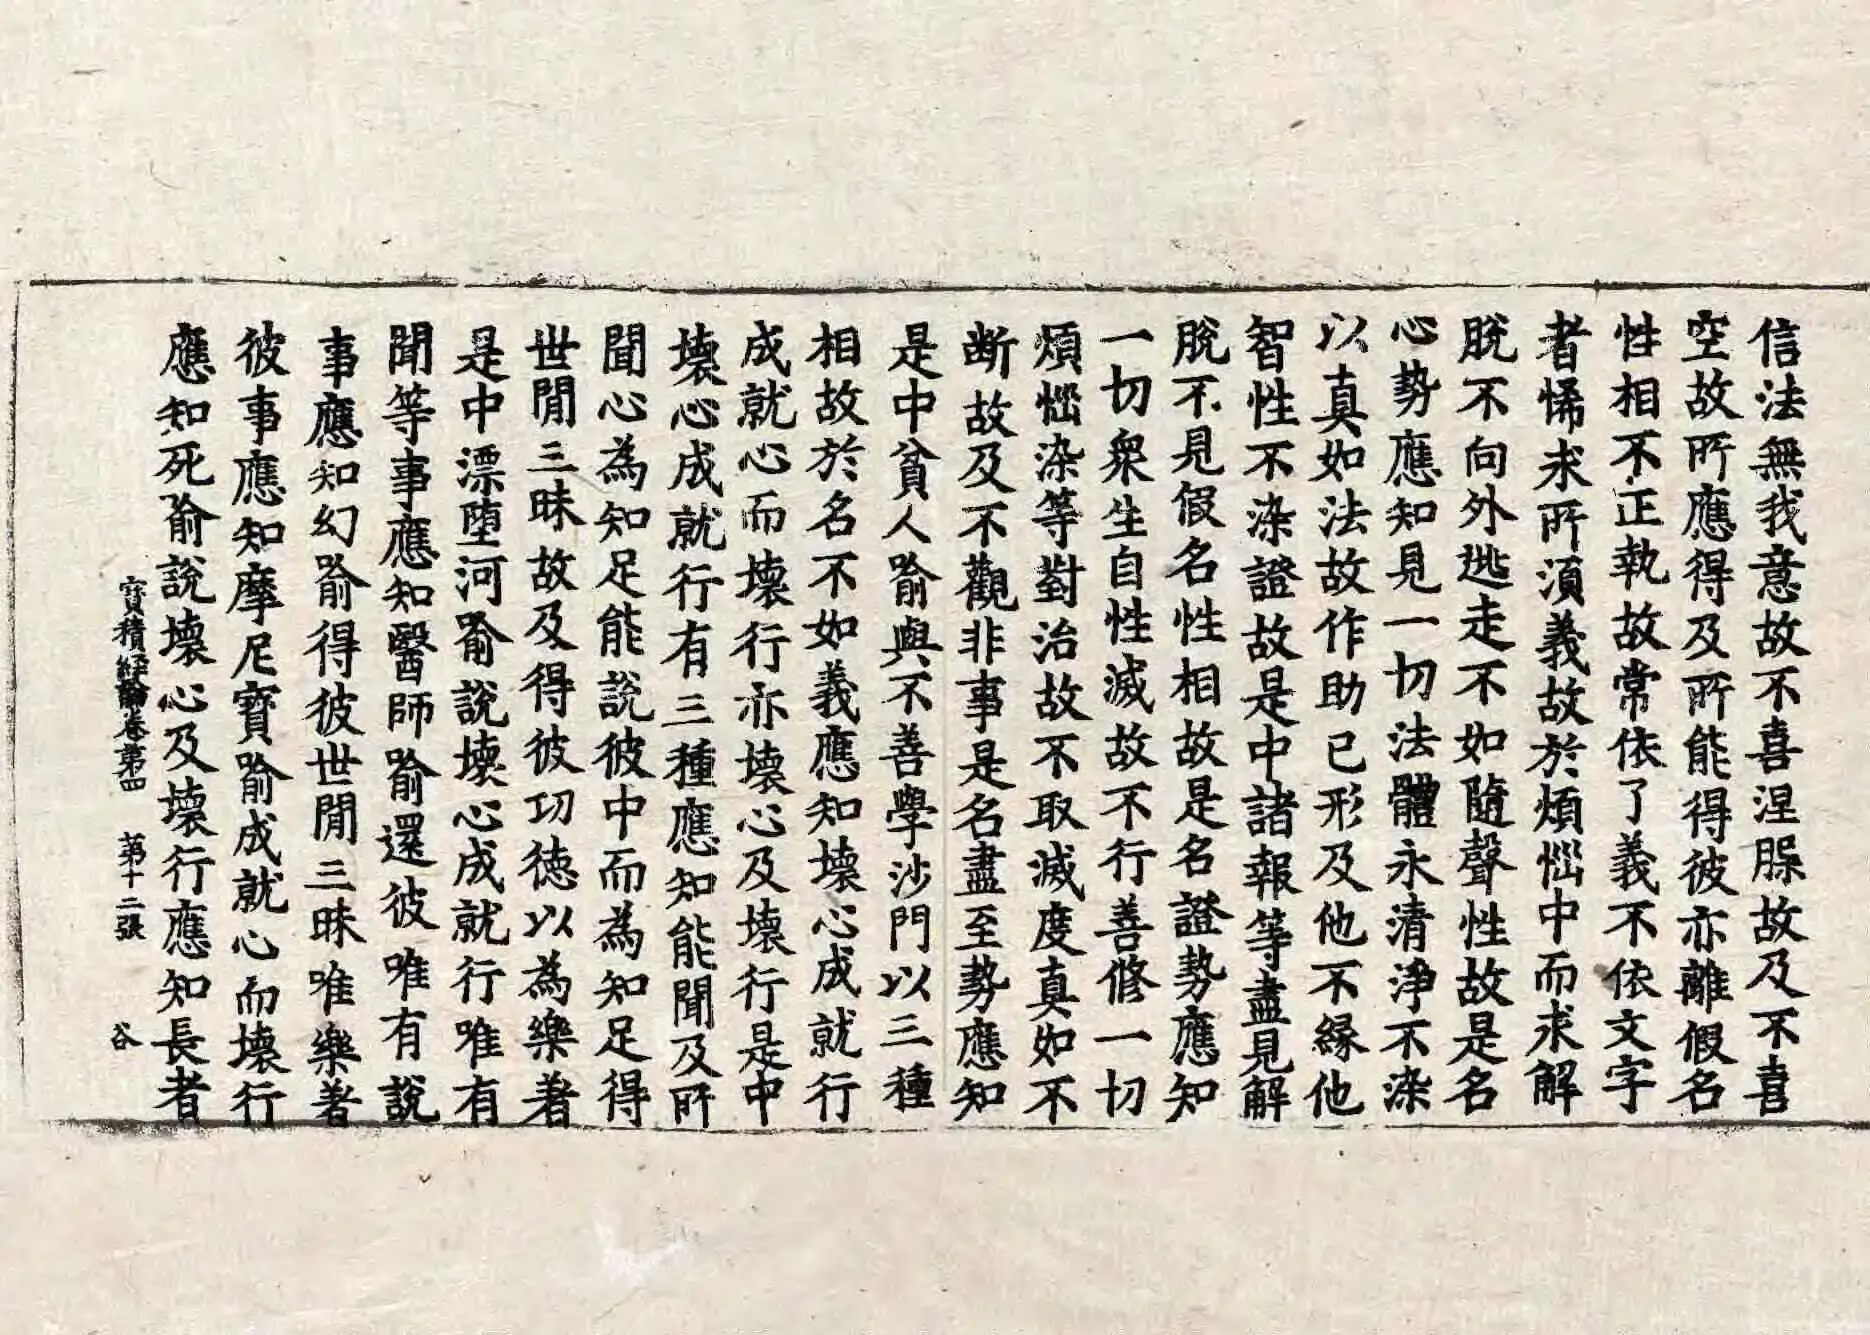 信法無我意故不喜涅槃故及不喜
空故所應得及所能得彼亦離假名
性相不正執故常依了義不依文字
者悕求所須義故於煩惱中而求解
脫不向外逃走不如隨聲性故是名
心勢應知見一切法體永清淨不染
以真如法故作助已形及他不緣他
智性不染證故是中諸報等盡見解
脫不見假名性相故是名證勢應知
一切衆生自性滅故不行善修一切
煩惱染等對治故不取滅度真如不
斷故及不觀非事是名盡至勢應知
是中貧人喻與不善學沙門以三種
相故於名不如義應知壞心成就行
成就心而壞行亦壞心及壞行是中
壞心成就行有三種應知能聞及所
聞心為知足能說彼中而為知足得
世閒三昧故及得彼功德以為樂著
是中漂墮河喻說壞心成就行唯有
聞等事應知醫師喻還彼唯有說
事應知幻喻得彼世閒三昧唯樂著
彼事應知摩尼寶喻成就心而壞行
應知死喻說壞心及壞行應知長者
寶積經論卷第四　第十二張　谷